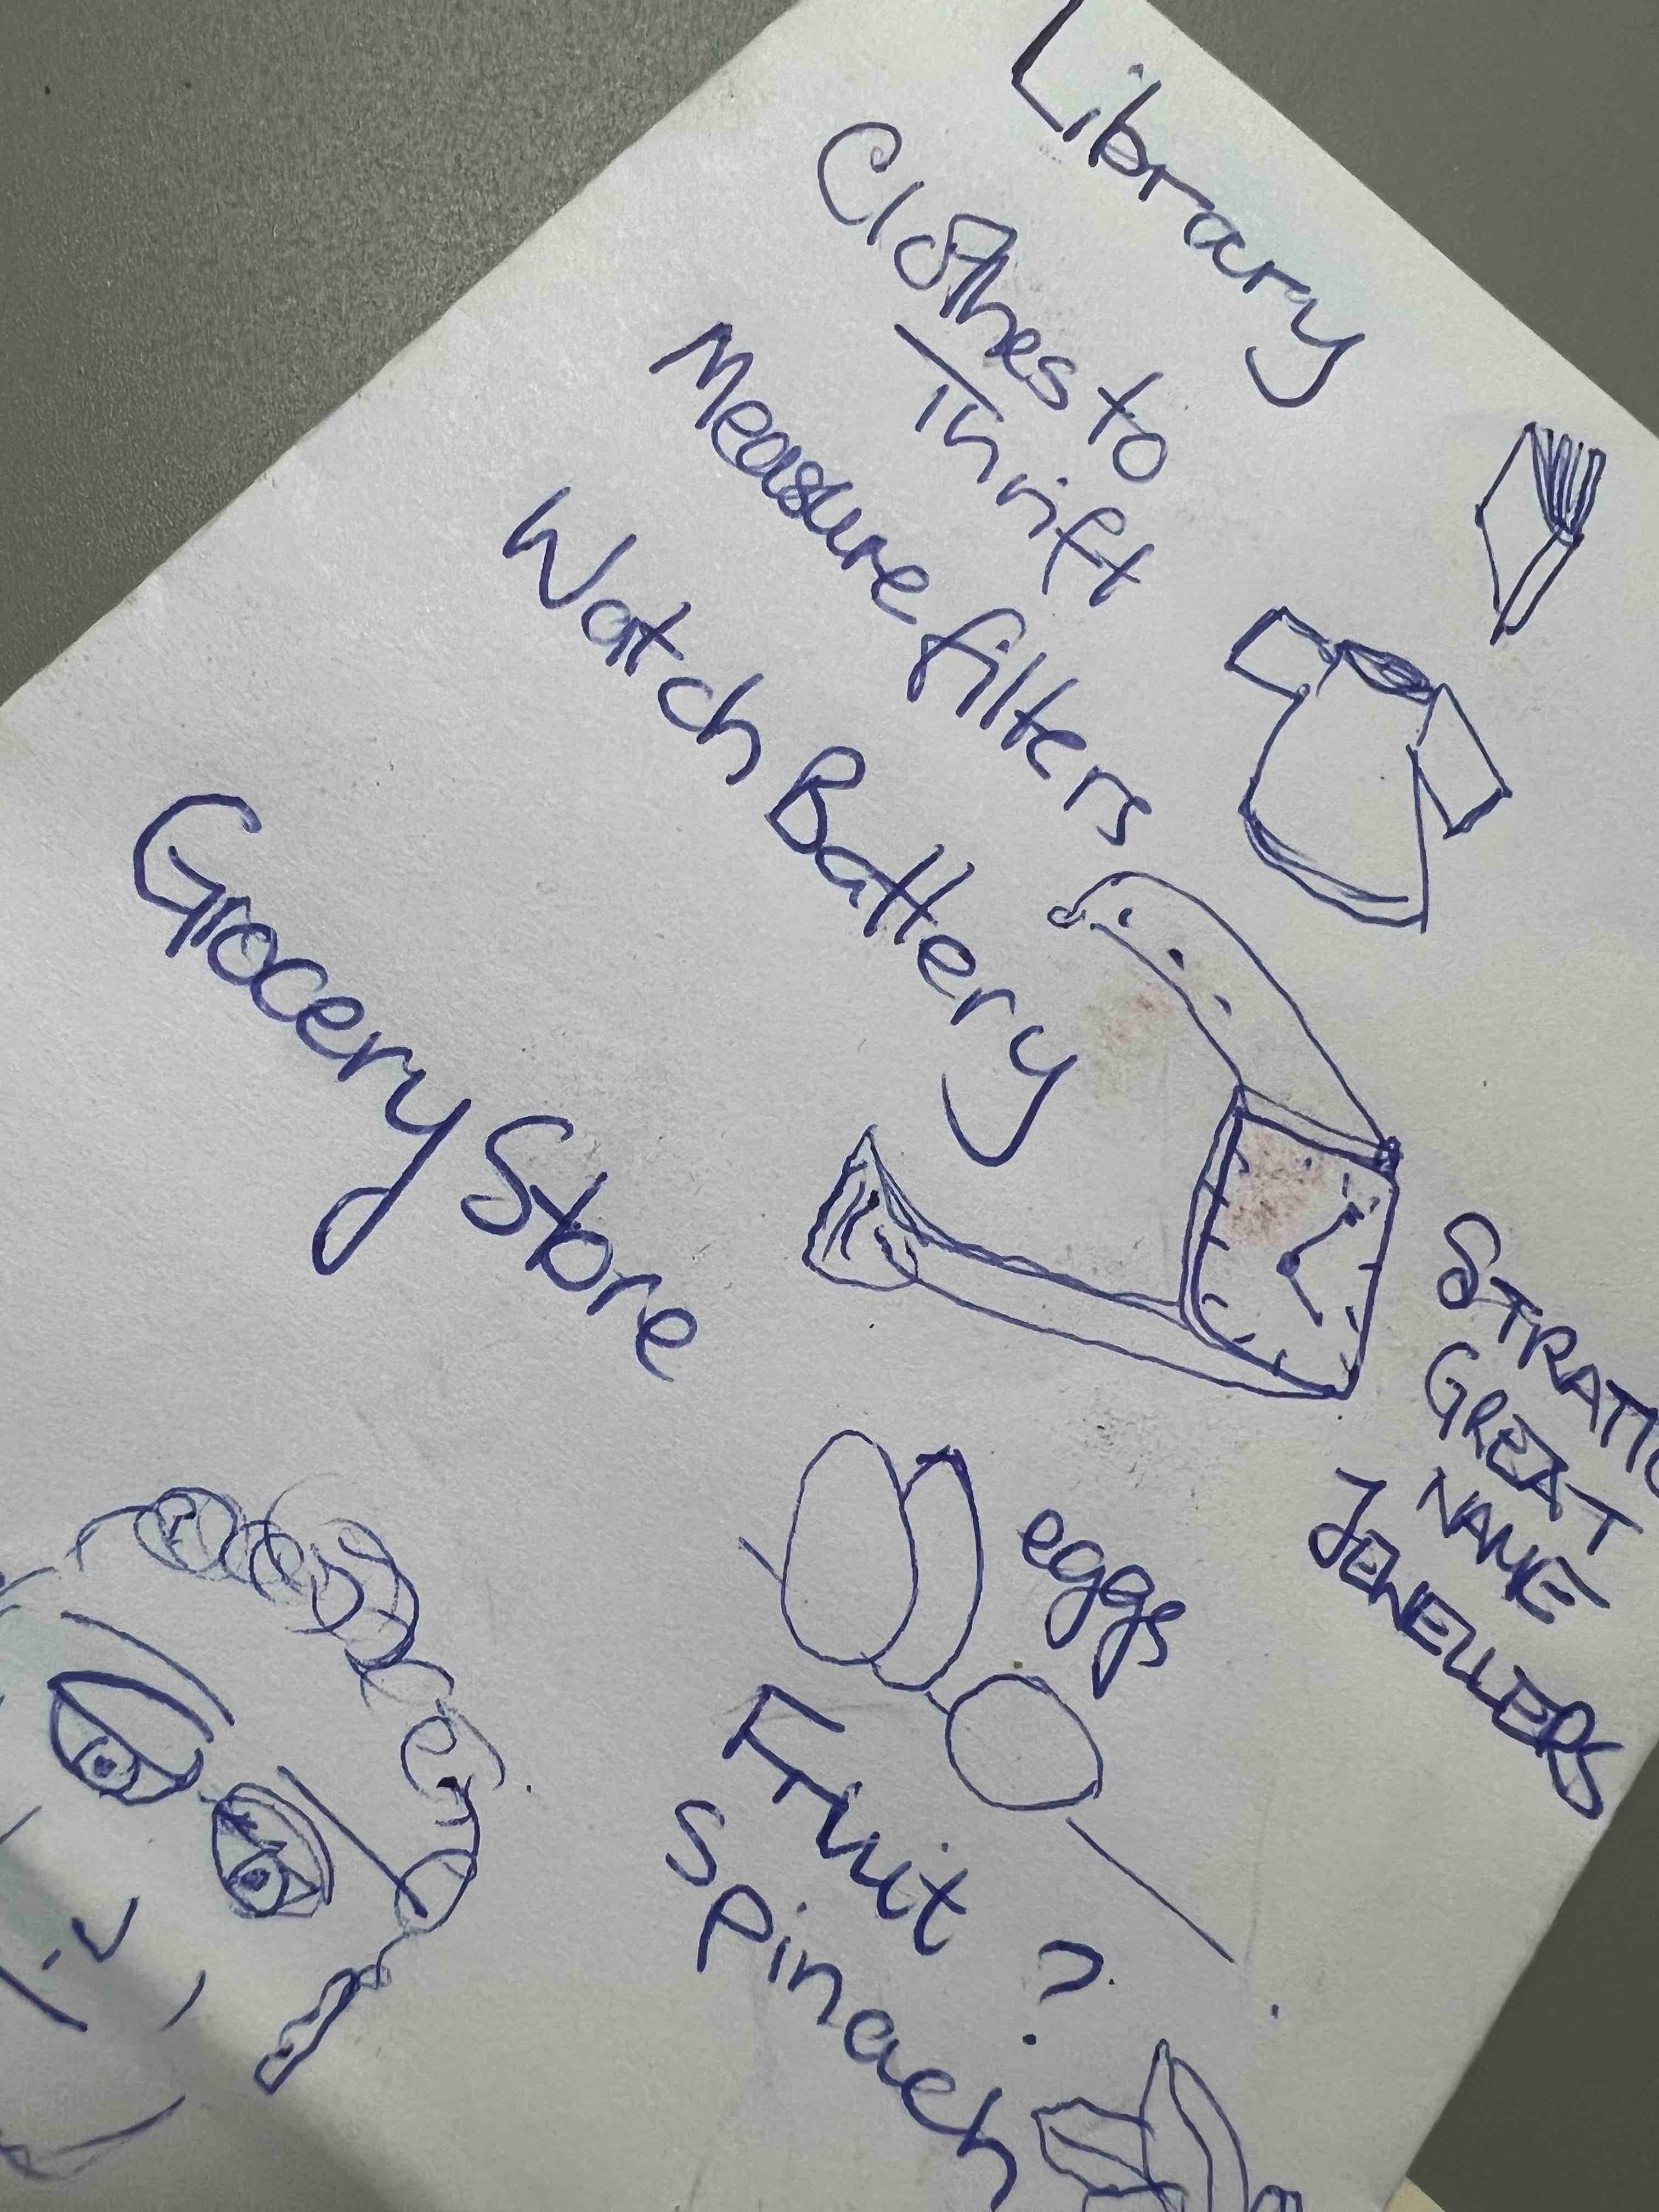 Library
Clothes to
Thrift
Measure filters
Watch Battery
Grocery Store
GREAT
NAME
JEWELLERS
eggs
Fruit ?
Spinach